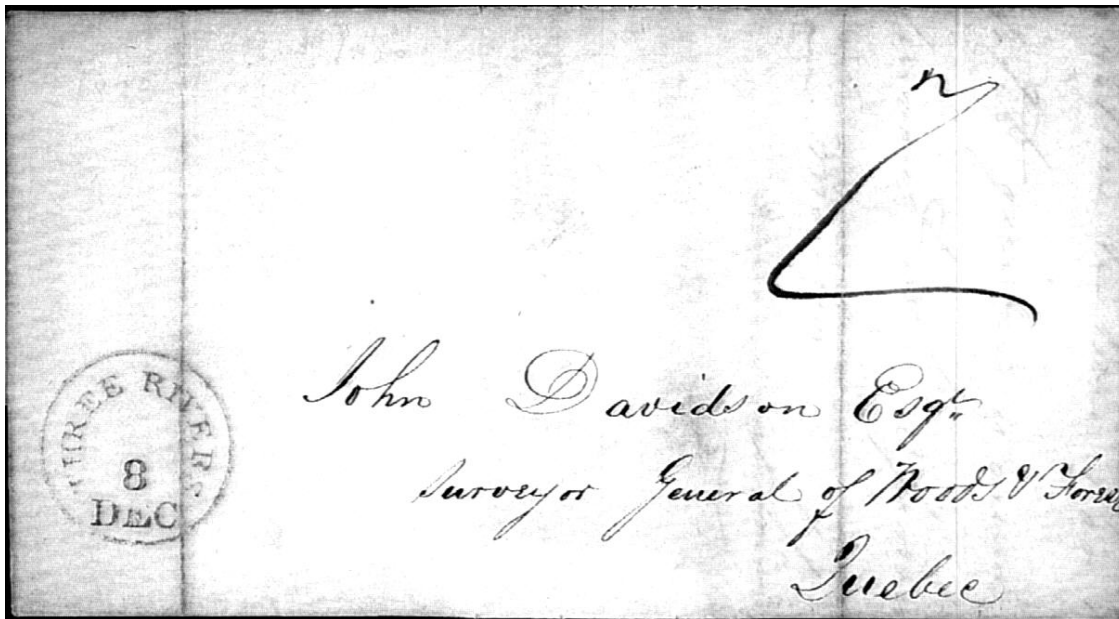 n
THREE RIVERS
8
DEC
John Davidson Esqr
Surveyor General of Woods & Forests
Quebec